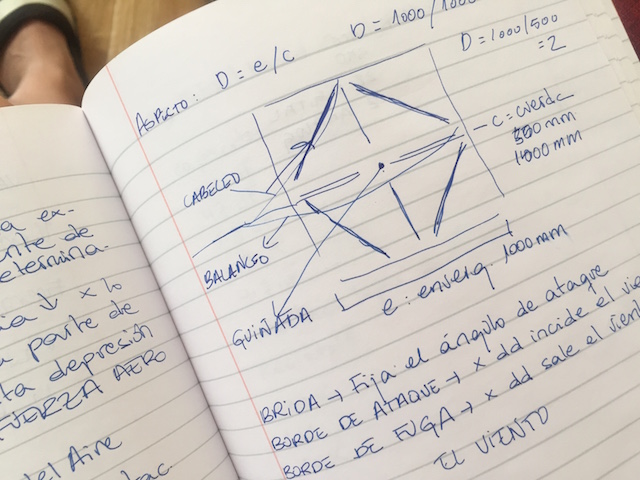 a ex-
nte de
determina.
ia ↓ x lo
a parte de
ta depresión
FUERZA AERO
del Aire
ASPECTO: D = e/c
D = 1000/1000
D = 1000/500
= 2
c = cuerda
500 mm
1000 mm
CABECEO
BALANCEO
GUIÑADA
e: enverg. 1000 mm
BRIDA → Fija el ángulo de ataque
BORDE DE ATAQUE → x dd incide el vie
BORDE DE FUGA → x dd sale el vient
EL VIENTO